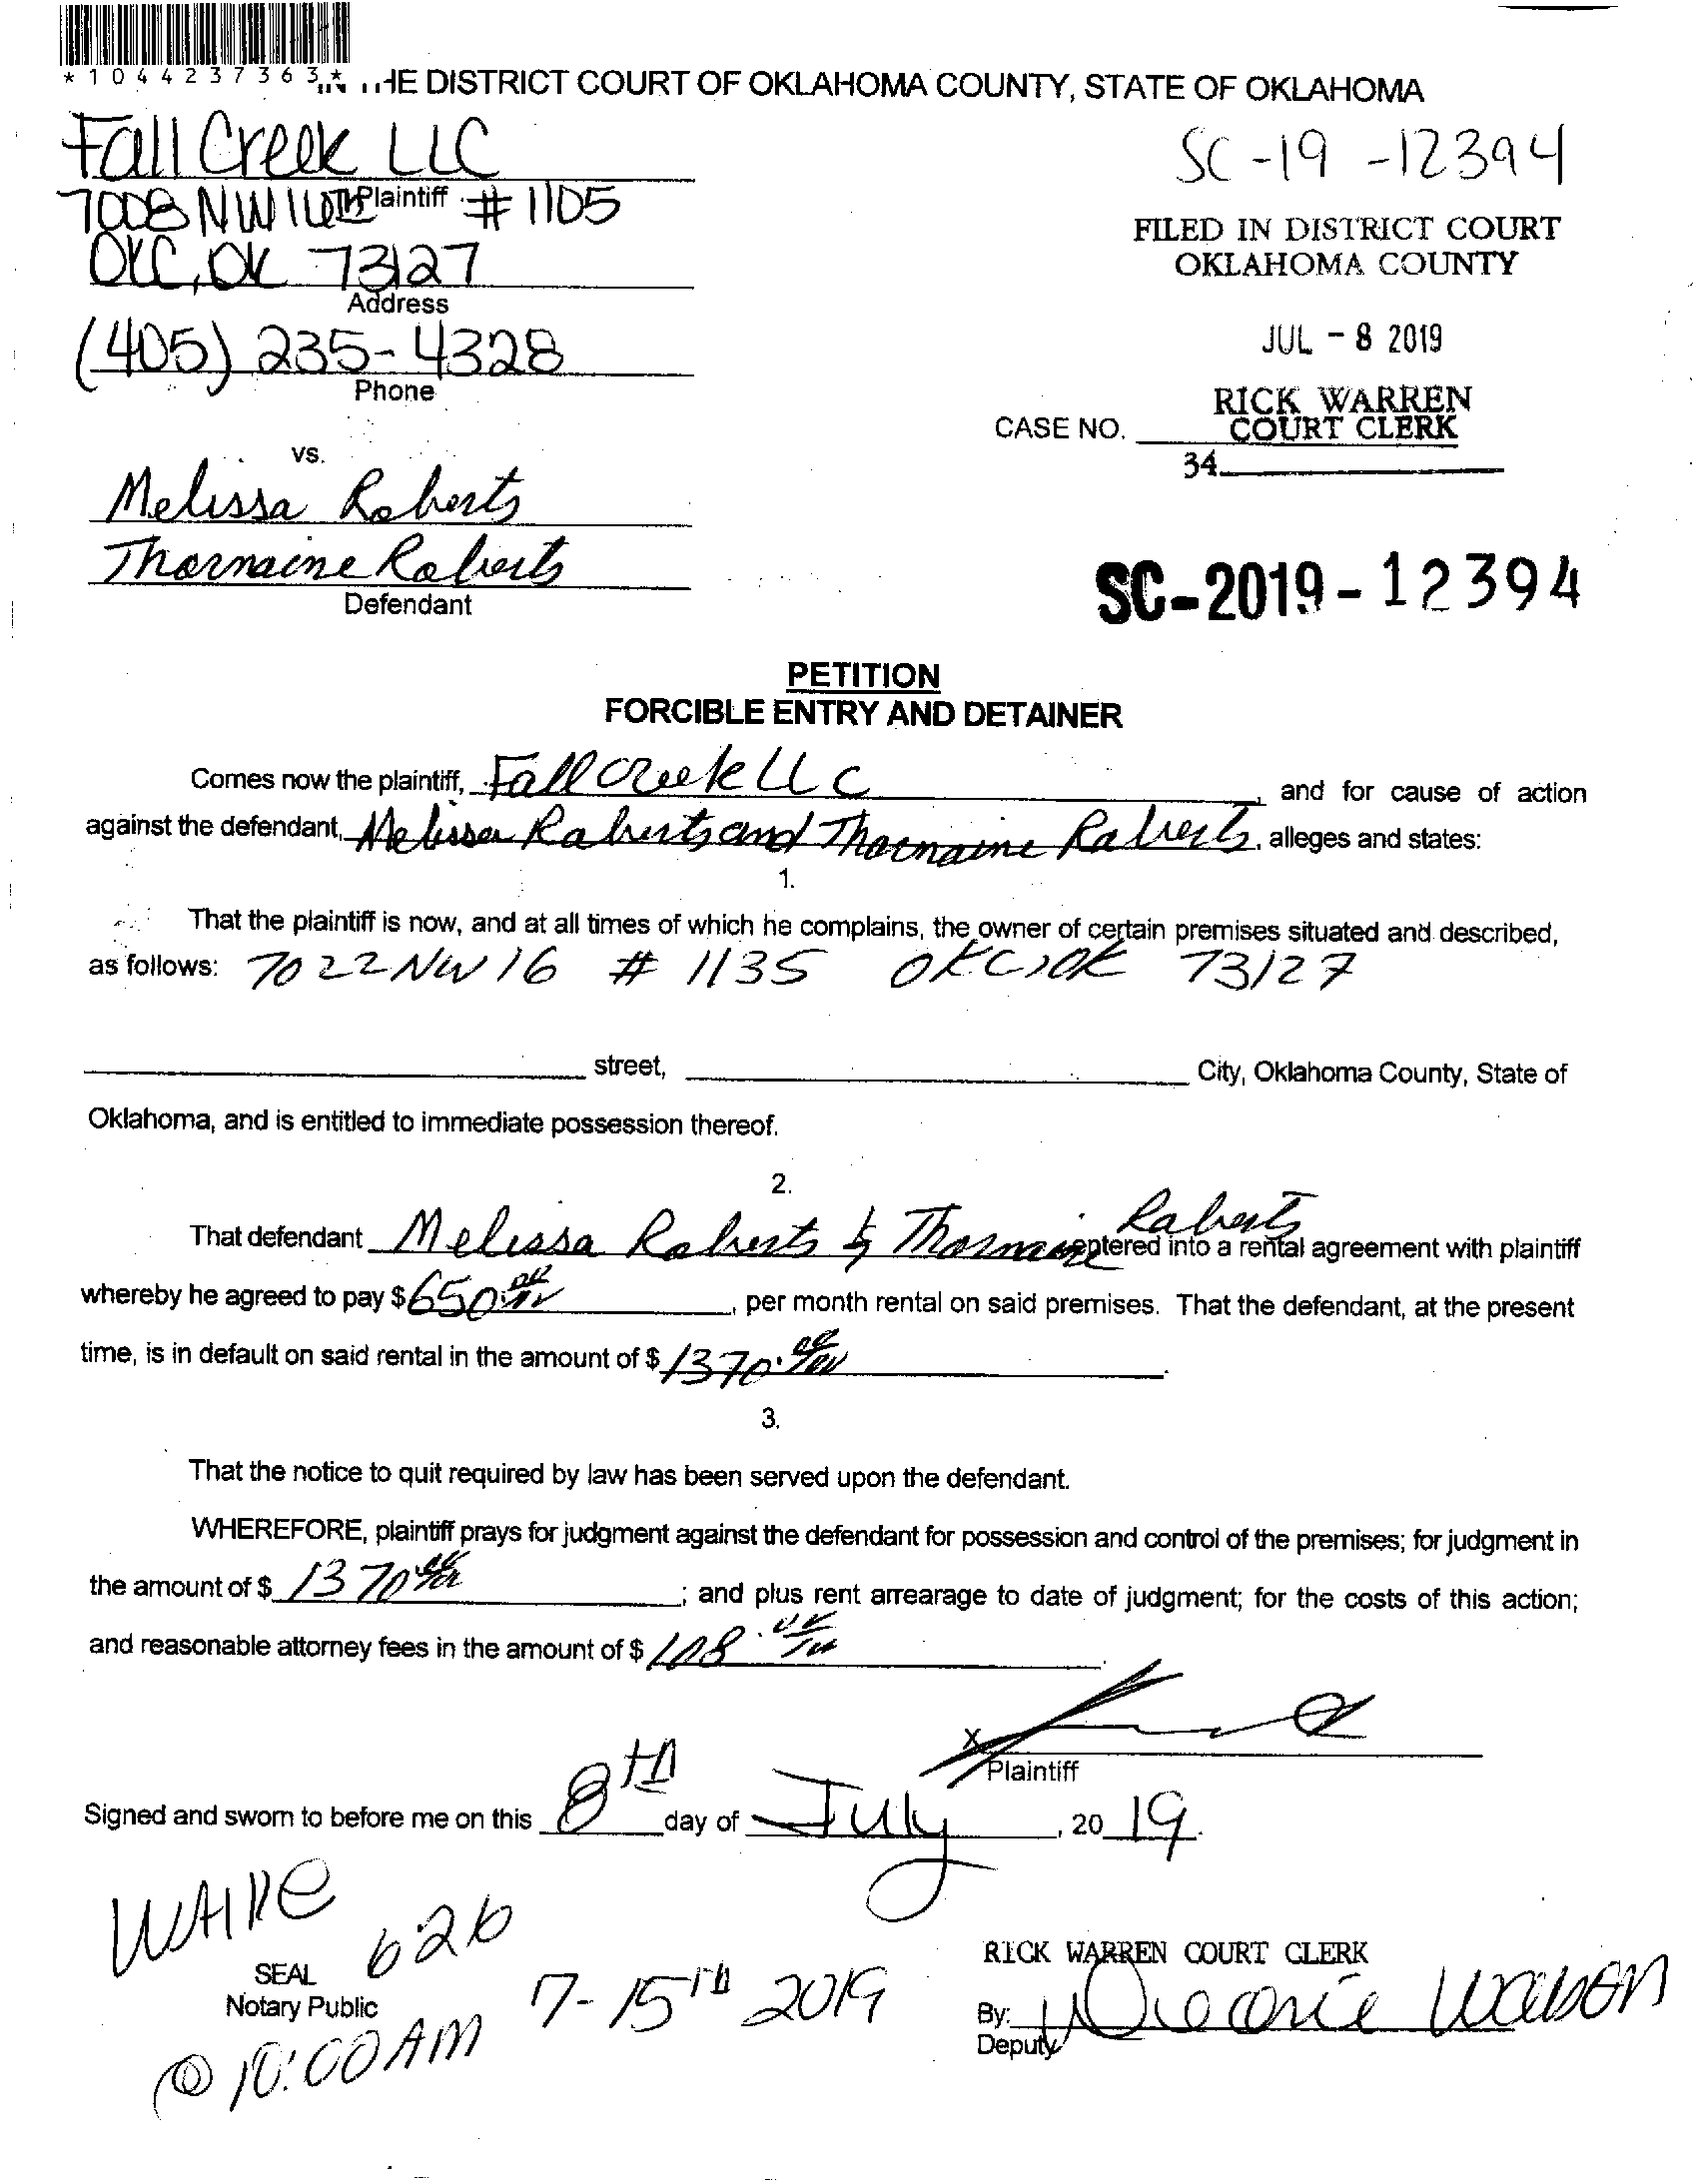 *1044237363*
IN THE DISTRICT COURT OF OKLAHOMA COUNTY, STATE OF OKLAHOMA
Fall Creek LLC
SC-19-12394
Plaintiff
7008 NW 16TH #1105
FILED IN DISTRICT COURT
OKC, OK 73127
OKLAHOMA COUNTY
Address
(405) 235-4328
JUL - 8 2019
Phone
RICK WARREN
CASE NO. COURT CLERK
vs.
34
Melissa Roberts
Thornaine Roberts
Defendant
SC-2019-12394
PETITION
FORCIBLE ENTRY AND DETAINER
Comes now the plaintiff, Fall Creek LLC, and for cause of action
against the defendant, Melissa Roberts and Thornaine Roberts, alleges and states:
1.
That the plaintiff is now, and at all times of which he complains, the owner of certain premises situated and described,
as follows: 7022 NW 16 # 1135 OKC, OK 73127
street, City, Oklahoma County, State of
Oklahoma, and is entitled to immediate possession thereof.
2.
That defendant Melissa Roberts & Thornaine Roberts entered into a rental agreement with plaintiff
whereby he agreed to pay $650, per month rental on said premises. That the defendant, at the present
time, is in default on said rental in the amount of $1370.
3.
That the notice to quit required by law has been served upon the defendant.
WHEREFORE, plaintiff prays for judgment against the defendant for possession and control of the premises; for judgment in
the amount of $ 1370; and plus rent arrearage to date of judgment; for the costs of this action;
and reasonable attorney fees in the amount of $ 108.
X
Plaintiff
Signed and sworn to before me on this 8th day of July, 2019.
626
RICK WARREN COURT CLERK
SEAL
Notary Public
7-15TH 2019
By:
Deputy
@ 10:00 AM